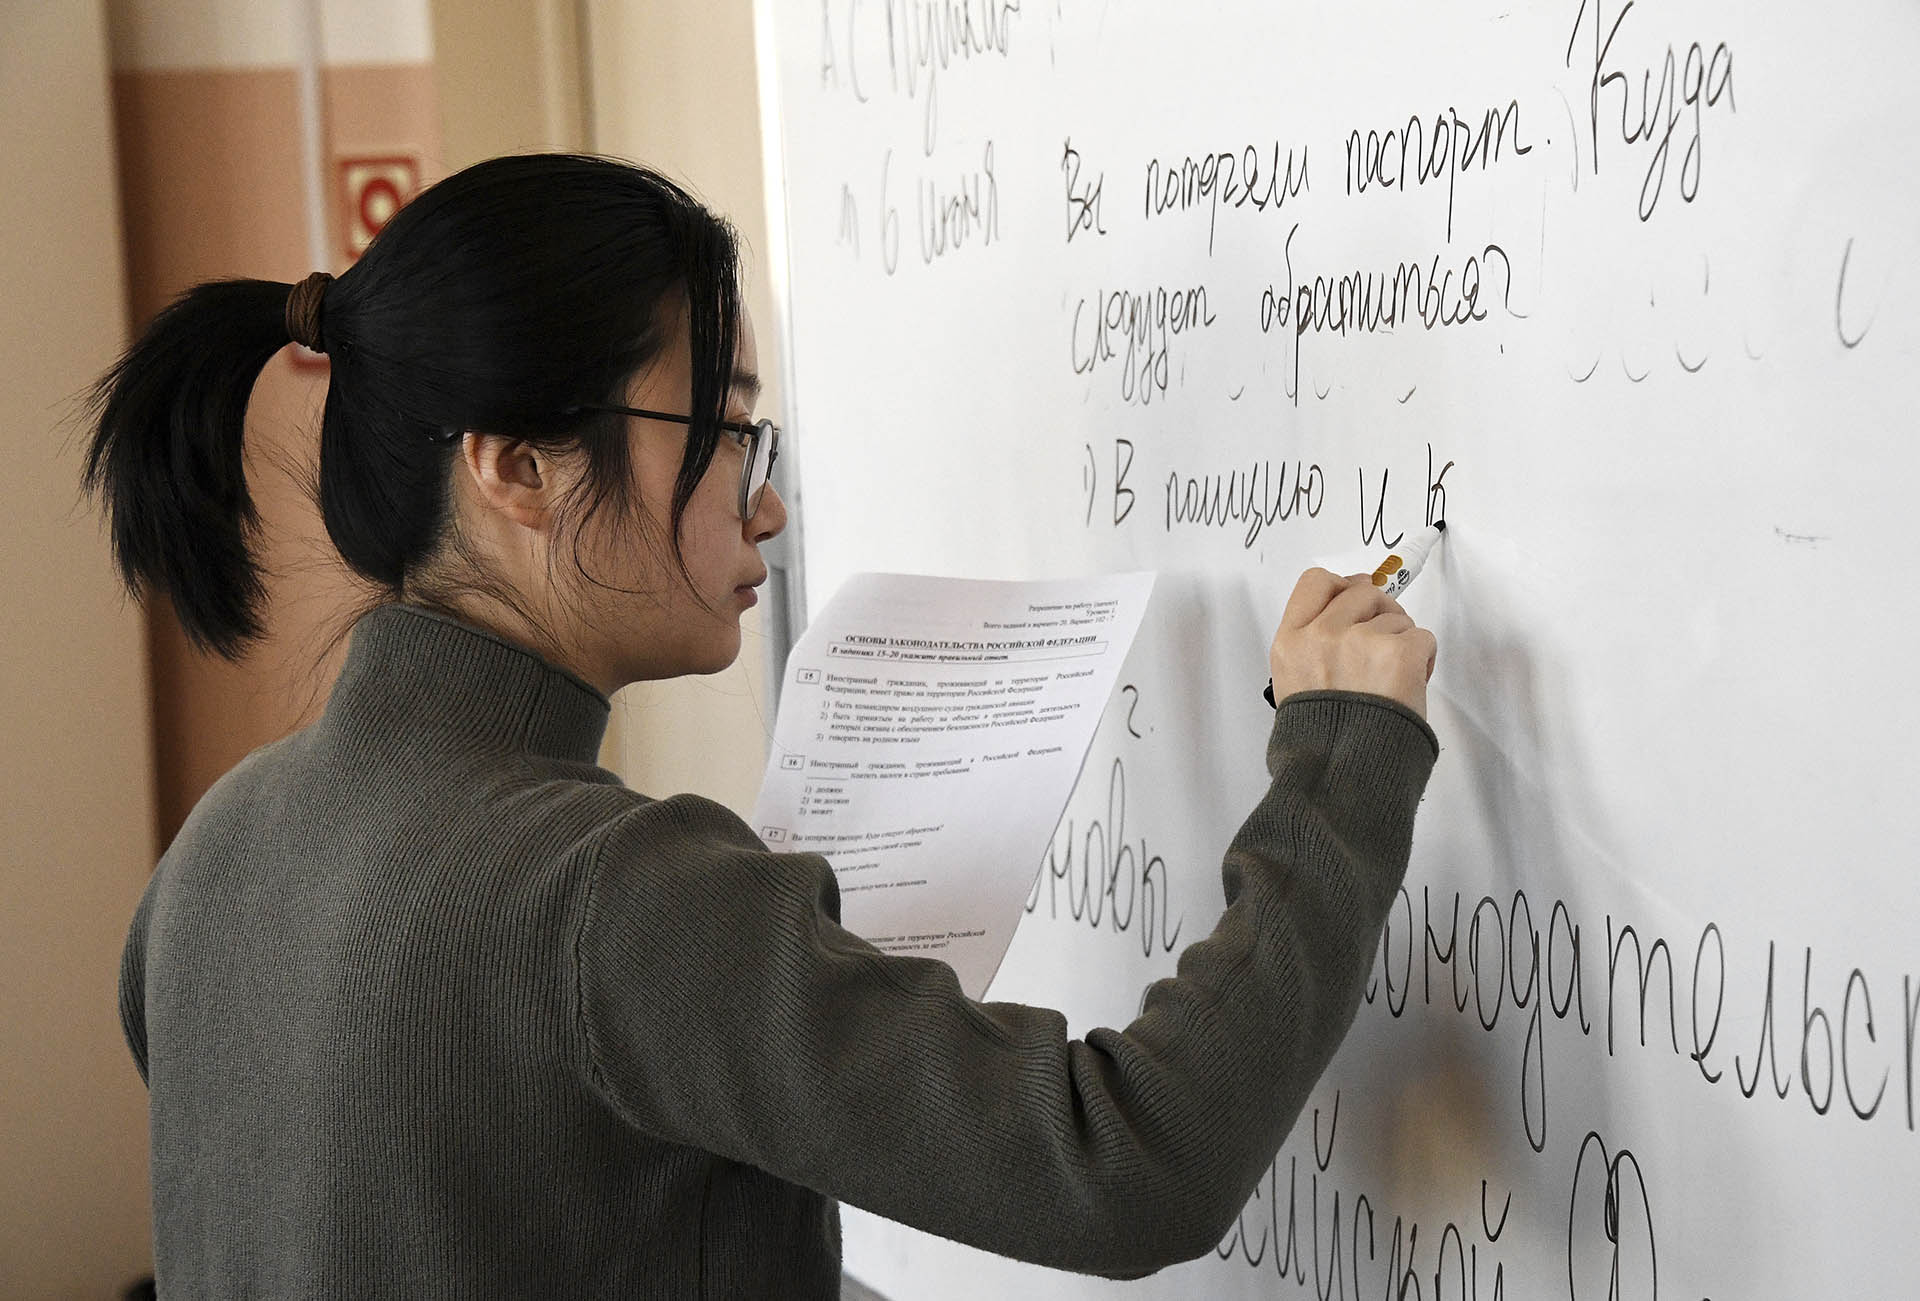 А.С Пушкин
6 июня
Вы потеряли паспорт. Куда
следует обратиться?
1) В полицию и к
г.
новы конодательст
сийской Ф
Разрешение на работу (патент)
Уровень 1.
Всего заданий в варианте 20. Вариант 102 - 7
ОСНОВЫ ЗАКОНОДАТЕЛЬСТВА РОССИЙСКОЙ ФЕДЕРАЦИИ
В заданиях 15–20 укажите правильный ответ.
15 Иностранный гражданин, проживающий на территории Российской
Федерации, имеет право на территории Российской Федерации
1) быть командиром воздушного судна гражданской авиации
2) быть принятым на работу на объекты и организации, деятельность
которых связана с обеспечением безопасности Российской Федерации
3) говорить на родном языке
16 Иностранный гражданин, проживающий в Российской Федерации,
платить налоги в стране пребывания.
1) должен
2) не должен
3) может
17 Вы потеряли паспорт. Куда следует обратиться?
и консульство своей страны
работы
получить и заполнить
на территории Российской
ответственность за него?